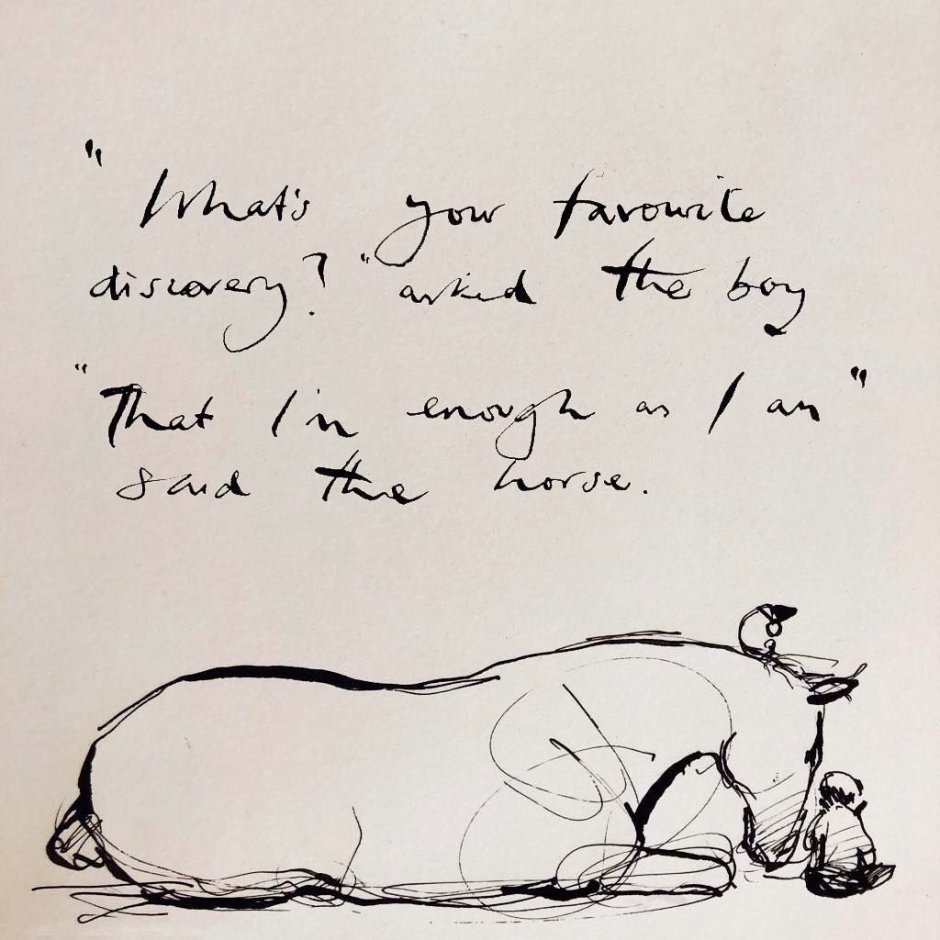 "What's your favourite
discovery?" asked the boy
"That I'm enough as I am"
said the horse.